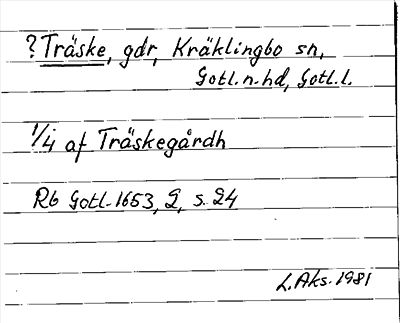 ? Träske, gdr, Kräklingbo sn,
Gotl. n. hd, Gotl. l.
1/4 af Träskegårdh
Rb Gotl. 1653, 2, s. 24
L. Aks. 1981